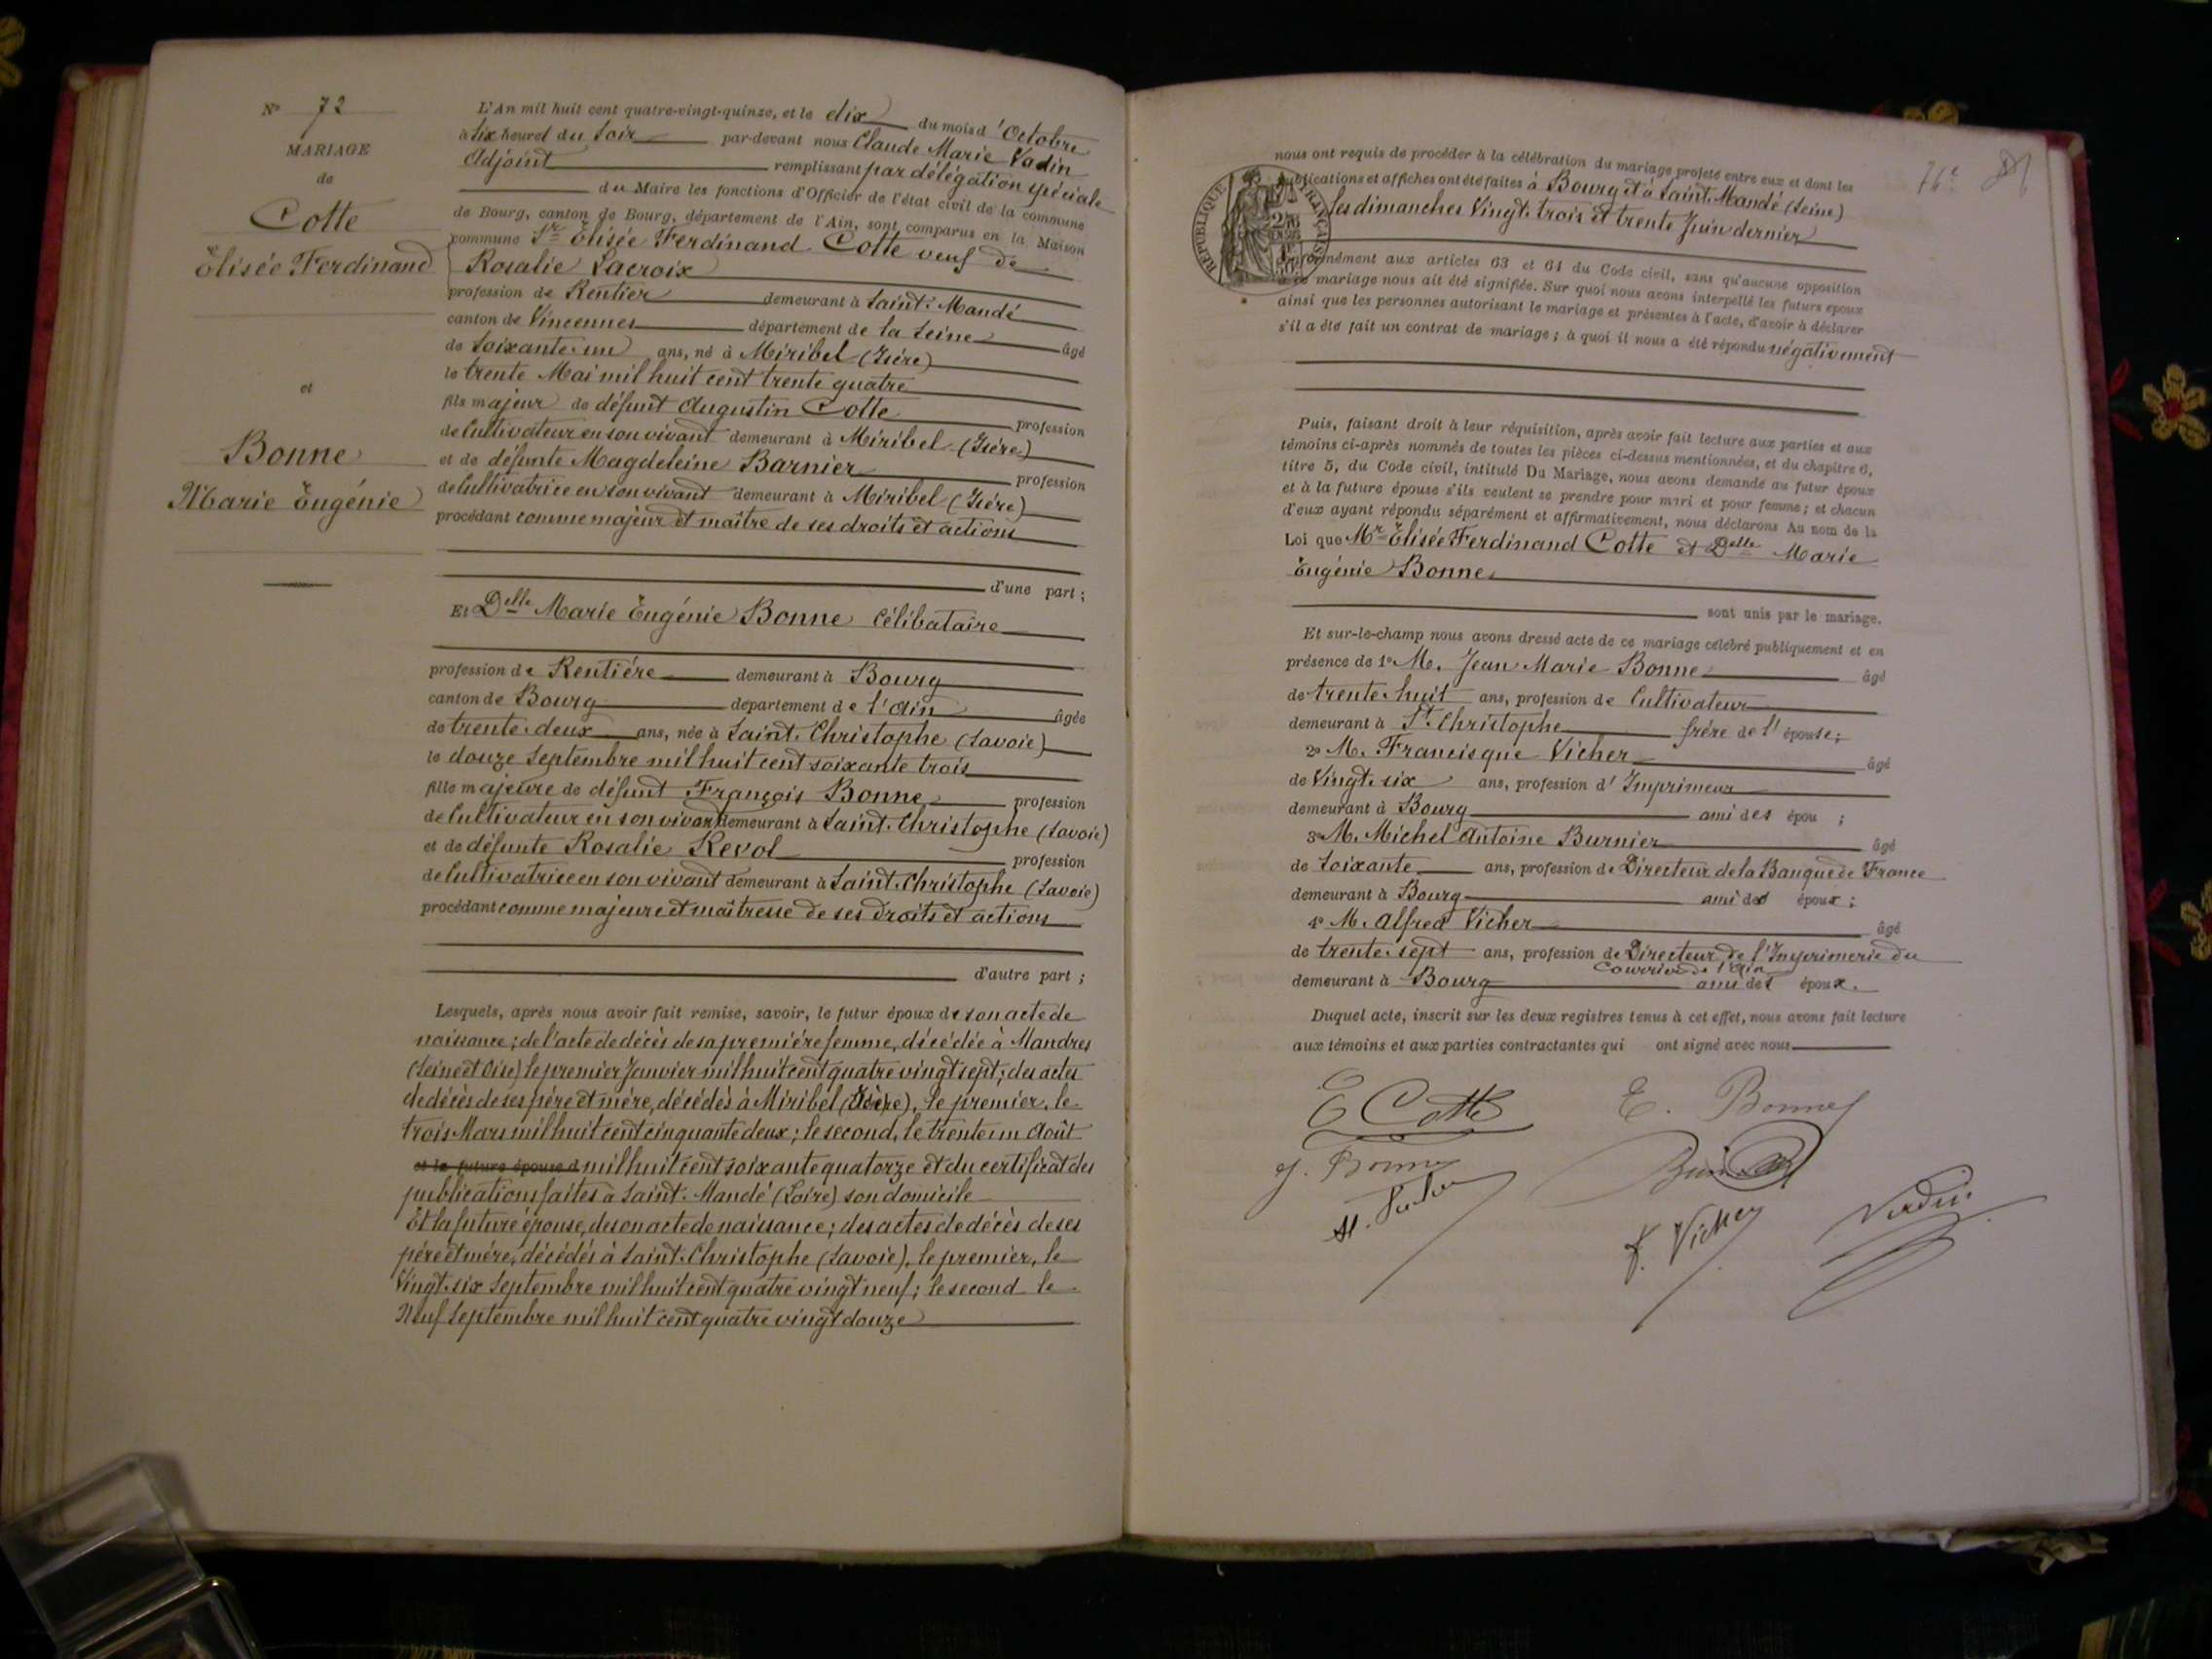 N° 72
MARIAGE
de
Cotte
Élisée Ferdinand
et
Bonne
Marie Eugénie
L'An mil huit cent quatre-vingt-quinze, et le dix du mois d'Octobre
à six heures du soir par-devant nous Claude Marie Vadin
Adjoint remplissant par délégation spéciale
du Maire les fonctions d'Officier de l'état civil de la commune
de Bourg, canton de Bourg, département de l'Ain, sont comparus en la Maison
commune Sr Élisée Ferdinand Cotte veuf de
Rosalie Lacroix
profession de Rentier demeurant à Saint-Mandé
canton de Vincennes département de la Seine âgé
de soixante-un ans, né à Miribel (Isère)
le trente Mai mil huit cent trente quatre
fils majeur de défunt Augustin Cotte profession
de Cultivateur en son vivant demeurant à Miribel (Isère)
et de défunte Magdeleine Barnier profession
de Cultivatrice en son vivant demeurant à Miribel (Isère)
procédant comme majeur et maître de ses droits et actions
d'une part ;
Et Delle Marie Eugénie Bonne Célibataire
profession de Rentière demeurant à Bourg
canton de Bourg département de l'Ain âgée
de trente-deux ans, née à Saint-Christophe (Savoie)
le douze Septembre mil huit cent soixante trois
fille majeure de défunt François Bonne profession
de Cultivateur en son vivant demeurant à Saint-Christophe (Savoie)
et de défunte Rosalie Revol profession
de Cultivatrice en son vivant demeurant à Saint-Christophe (Savoie)
procédant comme majeure et maîtresse de ses droits et actions
d'autre part ;
Lesquels, après nous avoir fait remise, savoir, le futur époux de son acte de
naissance ; de l'acte de décès de sa première femme, décédée à Mandres
(Seine et Oise) le premier Janvier mil huit cent quatre vingt sept ; des actes
de décès de ses père et mère, décédés à Miribel (Isère), le premier, le
trois Mars mil huit cent cinquante deux ; le second, le trente un Août
et la future épouse d mil huit cent soixante quatorze et du certificat des
publications faites à Saint-Mandé (Loire) son domicile
Et la future épouse, de son acte de naissance ; des actes de décès de ses
père et mère, décédés à Saint-Christophe (Savoie), le premier, le
Vingt-six Septembre mil huit cent quatre vingt neuf ; le second le
Neuf Septembre mil huit cent quatre vingt douze
76e
RÉPUBLIQUE FRANÇAISE
nous ont requis de procéder à la célébration du mariage projeté entre eux et dont les
publications et affiches ont été faites à Bourg et à Saint-Mandé (Seine)
les dimanches Vingt-trois et trente Juin dernier
conformément aux articles 63 et 64 du Code civil, sans qu'aucune opposition
à ce mariage nous ait été signifiée. Sur quoi nous avons interpellé les futurs époux
ainsi que les personnes autorisant le mariage et présentes à l'acte, d'avoir à déclarer
s'il a été fait un contrat de mariage ; à quoi il nous a été répondu négativement
Puis, faisant droit à leur réquisition, après avoir fait lecture aux parties et aux
témoins ci-après nommés de toutes les pièces ci-dessus mentionnées, et du chapitre 6,
titre 5, du Code civil, intitulé Du Mariage, nous avons demandé au futur époux
et à la future épouse s'ils veulent se prendre pour mari et pour femme ; et chacun
d'eux ayant répondu séparément et affirmativement, nous déclarons Au nom de la
Loi que Mr Élisée Ferdinand Cotte et Delle Marie
Eugénie Bonne
sont unis par le mariage.
Et sur-le-champ nous avons dressé acte de ce mariage célébré publiquement et en
présence de 1° M. Jean Marie Bonne âgé
de trente-huit ans, profession de Cultivateur
demeurant à St Christophe frère de l'épouse ;
2° M. Francisque Vicher âgé
de Vingt-six ans, profession d'Imprimeur
demeurant à Bourg ami des épou ;
3° M. Michel Antoine Burnier âgé
de Soixante ans, profession de Directeur de la Banque de France
demeurant à Bourg ami des époux ;
4° M. Alfred Vicher âgé
de trente-sept ans, profession de Directeur de l'Imprimerie du
Courrier de l'Ain
demeurant à Bourg ami des époux.
Duquel acte, inscrit sur les deux registres tenus à cet effet, nous avons fait lecture
aux témoins et aux parties contractantes qui ont signé avec nous
E Cotte
E. Bonne
J. Bonne
F. Vicher